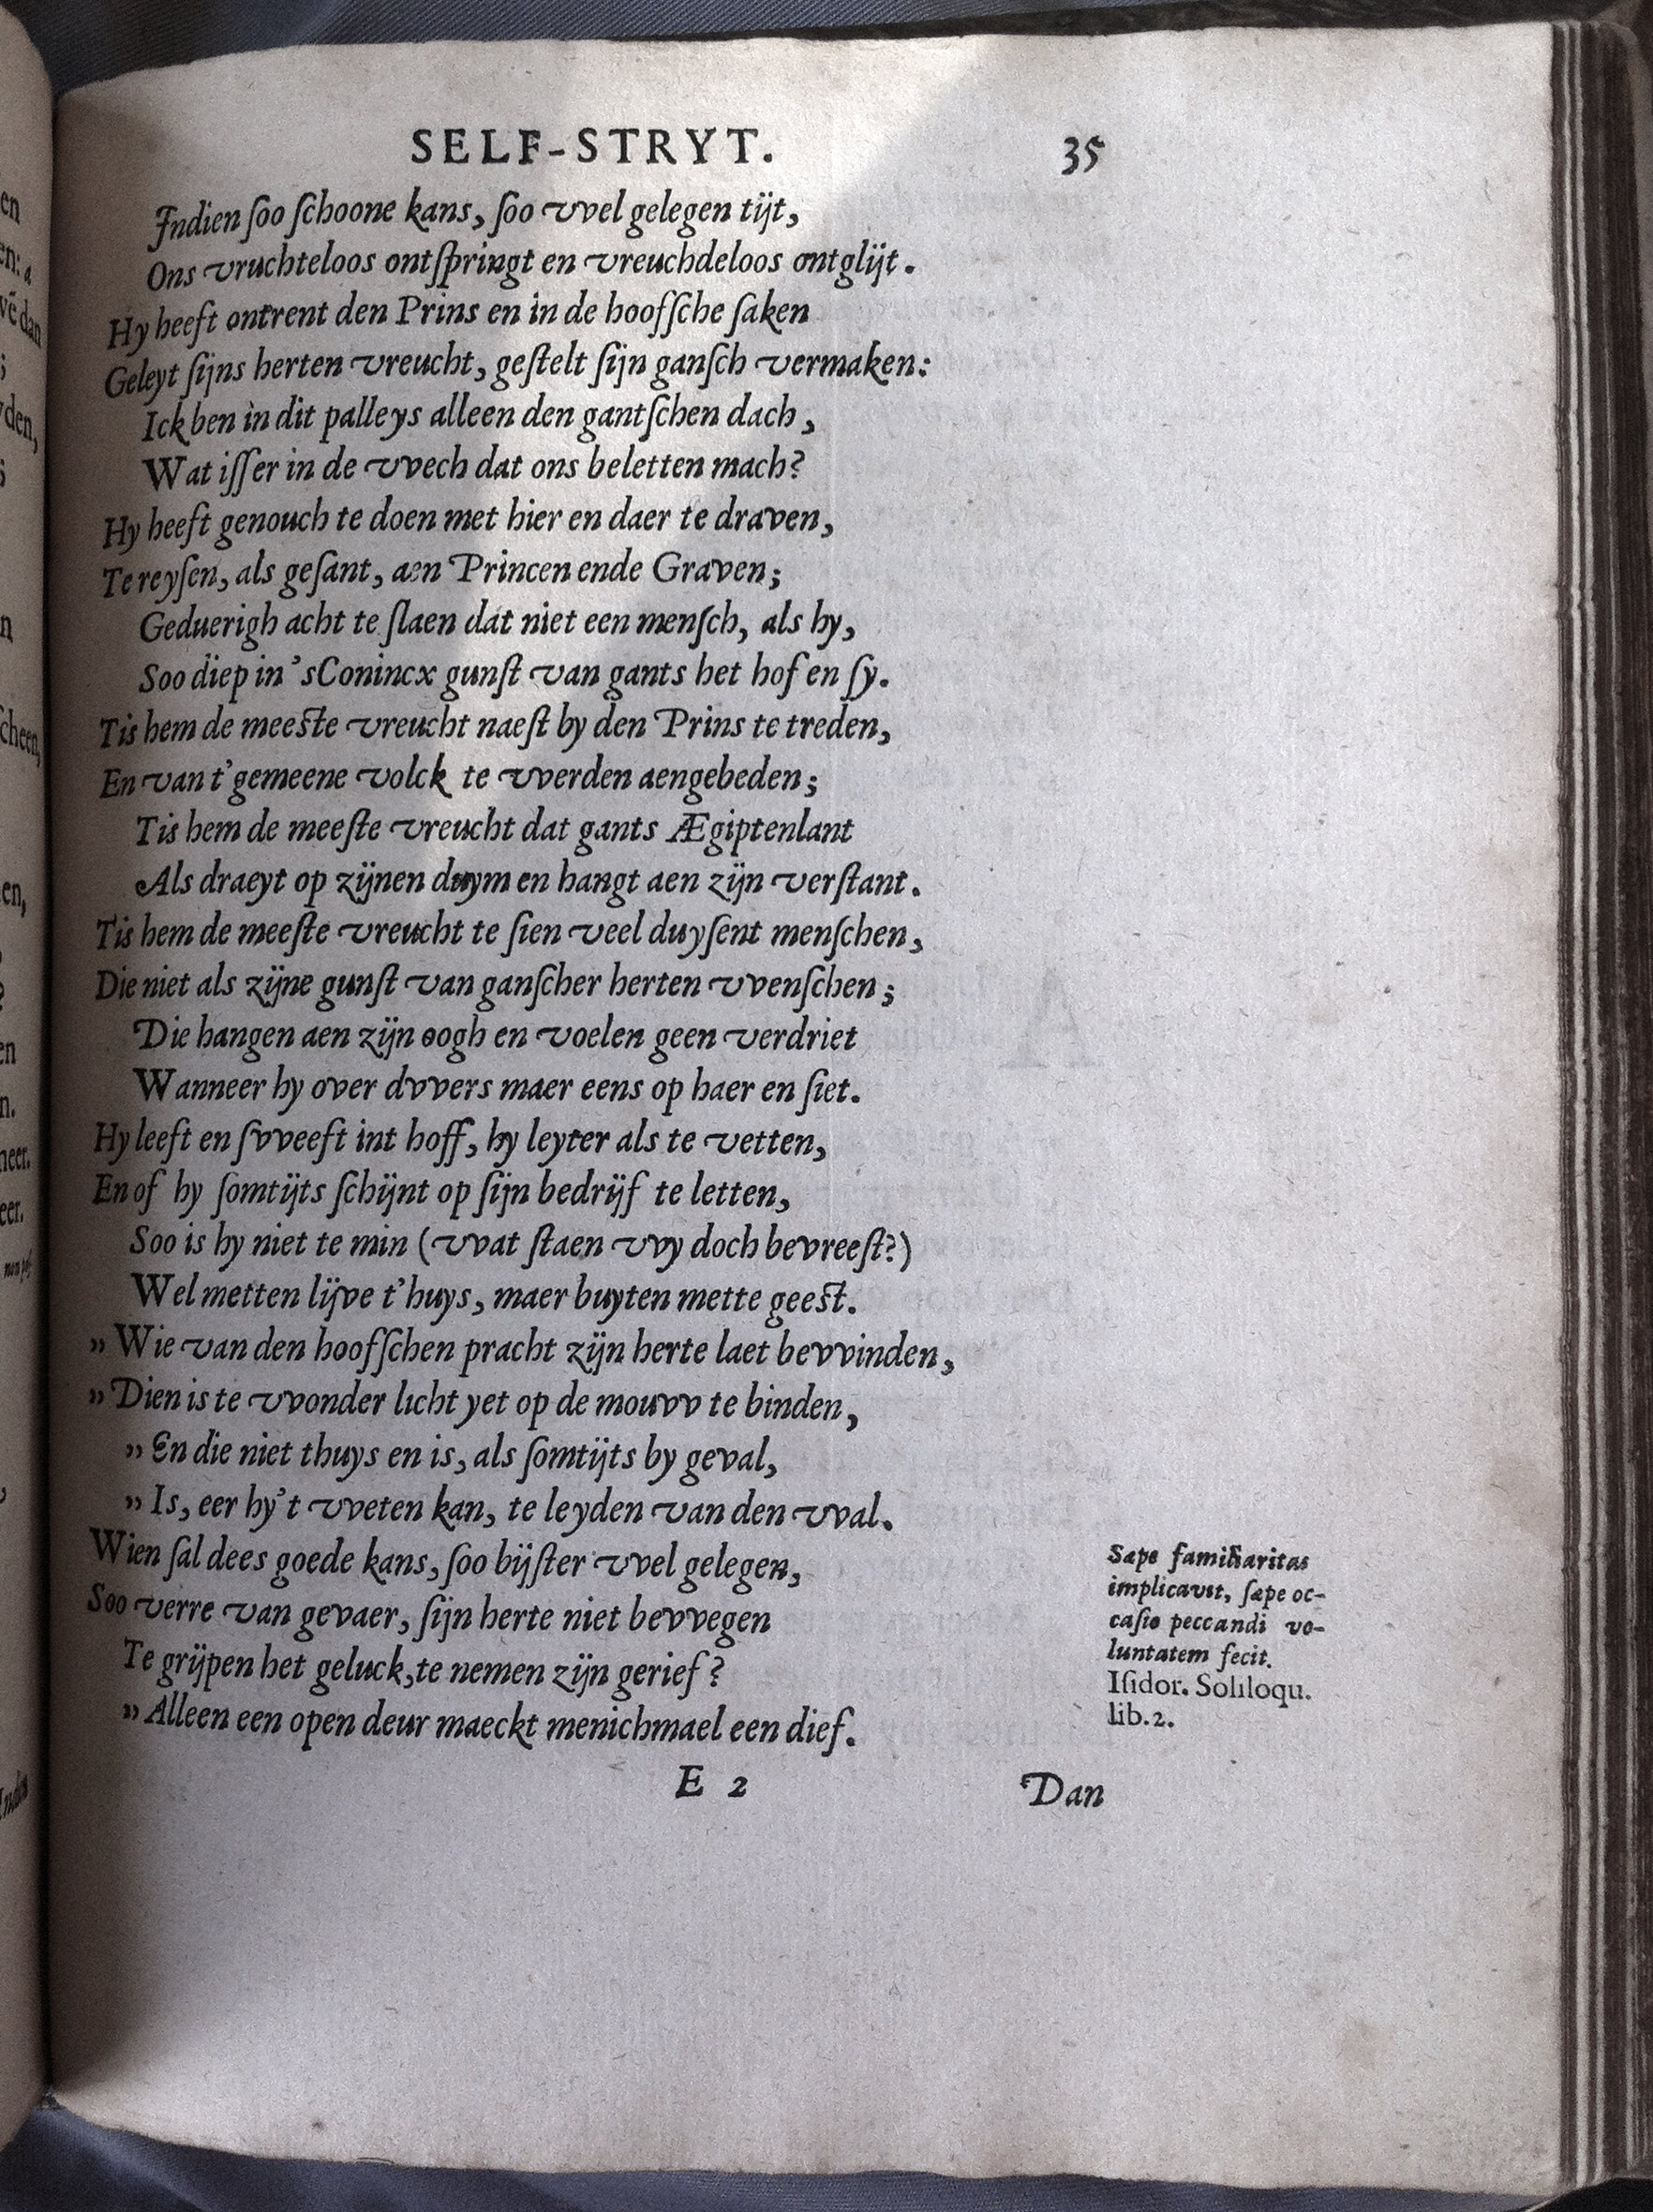 SELF-STRYT. 35
Indien soo schoone kans, soo vvel gelegen tijt,
Ons vruchteloos ontspringt en vreuchdeloos ontglijt.
Hy heeft ontrent den Prins en in de hoofsche saken
Geleyt sijns herten vreucht, gestelt sijn gansch vermaken:
Ick ben in dit palleys alleen den gantschen dach,
Wat isser in de vvech dat ons beletten mach?
Hy heeft genouch te doen met hier en daer te draven,
Te reysen, als gesant, aen Princen ende Graven;
Geduerigh acht te slaen dat niet een mensch, als hy,
Soo diep in 'sConincx gunst van gants het hof en sy.
Tis hem de meeste vreucht naest by den Prins te treden,
En van t'gemeene volck te vverden aengebeden;
Tis hem de meeste vreucht dat gants Ægiptenlant
Als draeyt op zijnen duym en hangt aen zijn verstant.
Tis hem de meeste vreucht te sien veel duysent menschen,
Die niet als zijne gunst van ganscher herten vvenschen;
Die hangen aen zijn oogh en voelen geen verdriet
Wanneer hy over dvvers maer eens op haer en siet.
Hy leeft en svveeft int hoff, hy leyter als te vetten,
En of hy somtijts schijnt op sijn bedrijf te letten,
Soo is hy niet te min (vvat staen vvy doch bevreest?)
Wel metten lijve t'huys, maer buyten mette geest.
„ Wie van den hoofschen pracht zijn herte laet bevvinden,
„ Dien is te vvonder licht yet op de mouvv te binden,
„ En die niet thuys en is, als somtijts by geval,
„ Is, eer hy't vveten kan, te leyden van den vval.
Wien sal dees goede kans, soo bijster vvel gelegen,
Soo verre van gevaer, sijn herte niet bevvegen
Te grijpen het geluck, te nemen zijn gerief?
„ Alleen een open deur maeckt menichmael een dief.
Sæpe familiaritas
implicavit, sæpe oc-
casio peccandi vo-
luntatem fecit.
Isidor. Soliloqu.
lib. 2.
E 2 Dan